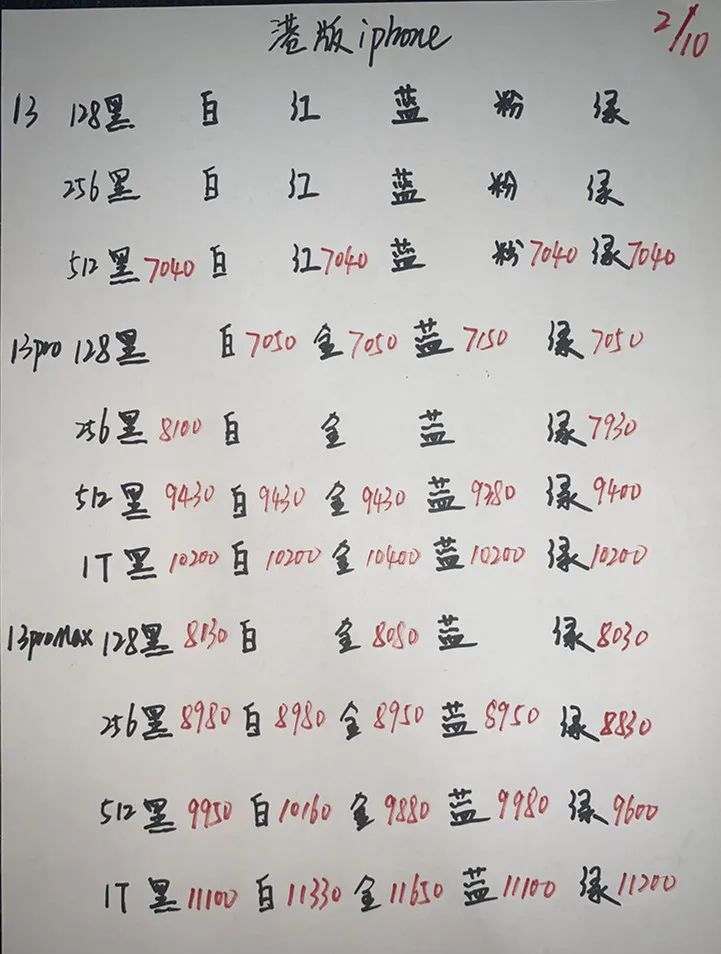 港版iphone 2/10
13 128黑 白 红 蓝 粉 绿
256黑 白 红 蓝 粉 绿
512黑7040 白 红7040 蓝 粉7040 绿7040
13pro 128黑 白7050 金7050 蓝7150 绿7050
256黑8100 白 金 蓝 绿7930
512黑9430 白9430 金9430 蓝9380 绿9400
1T黑10200 白10200 金10400 蓝10200 绿10200
13proMax 128黑8130 白 金8080 蓝 绿8030
256黑8980 白8980 金8950 蓝8950 绿8830
512黑9950 白10160 金9880 蓝9980 绿9600
1T黑11100 白11330 金11650 蓝11100 绿11200